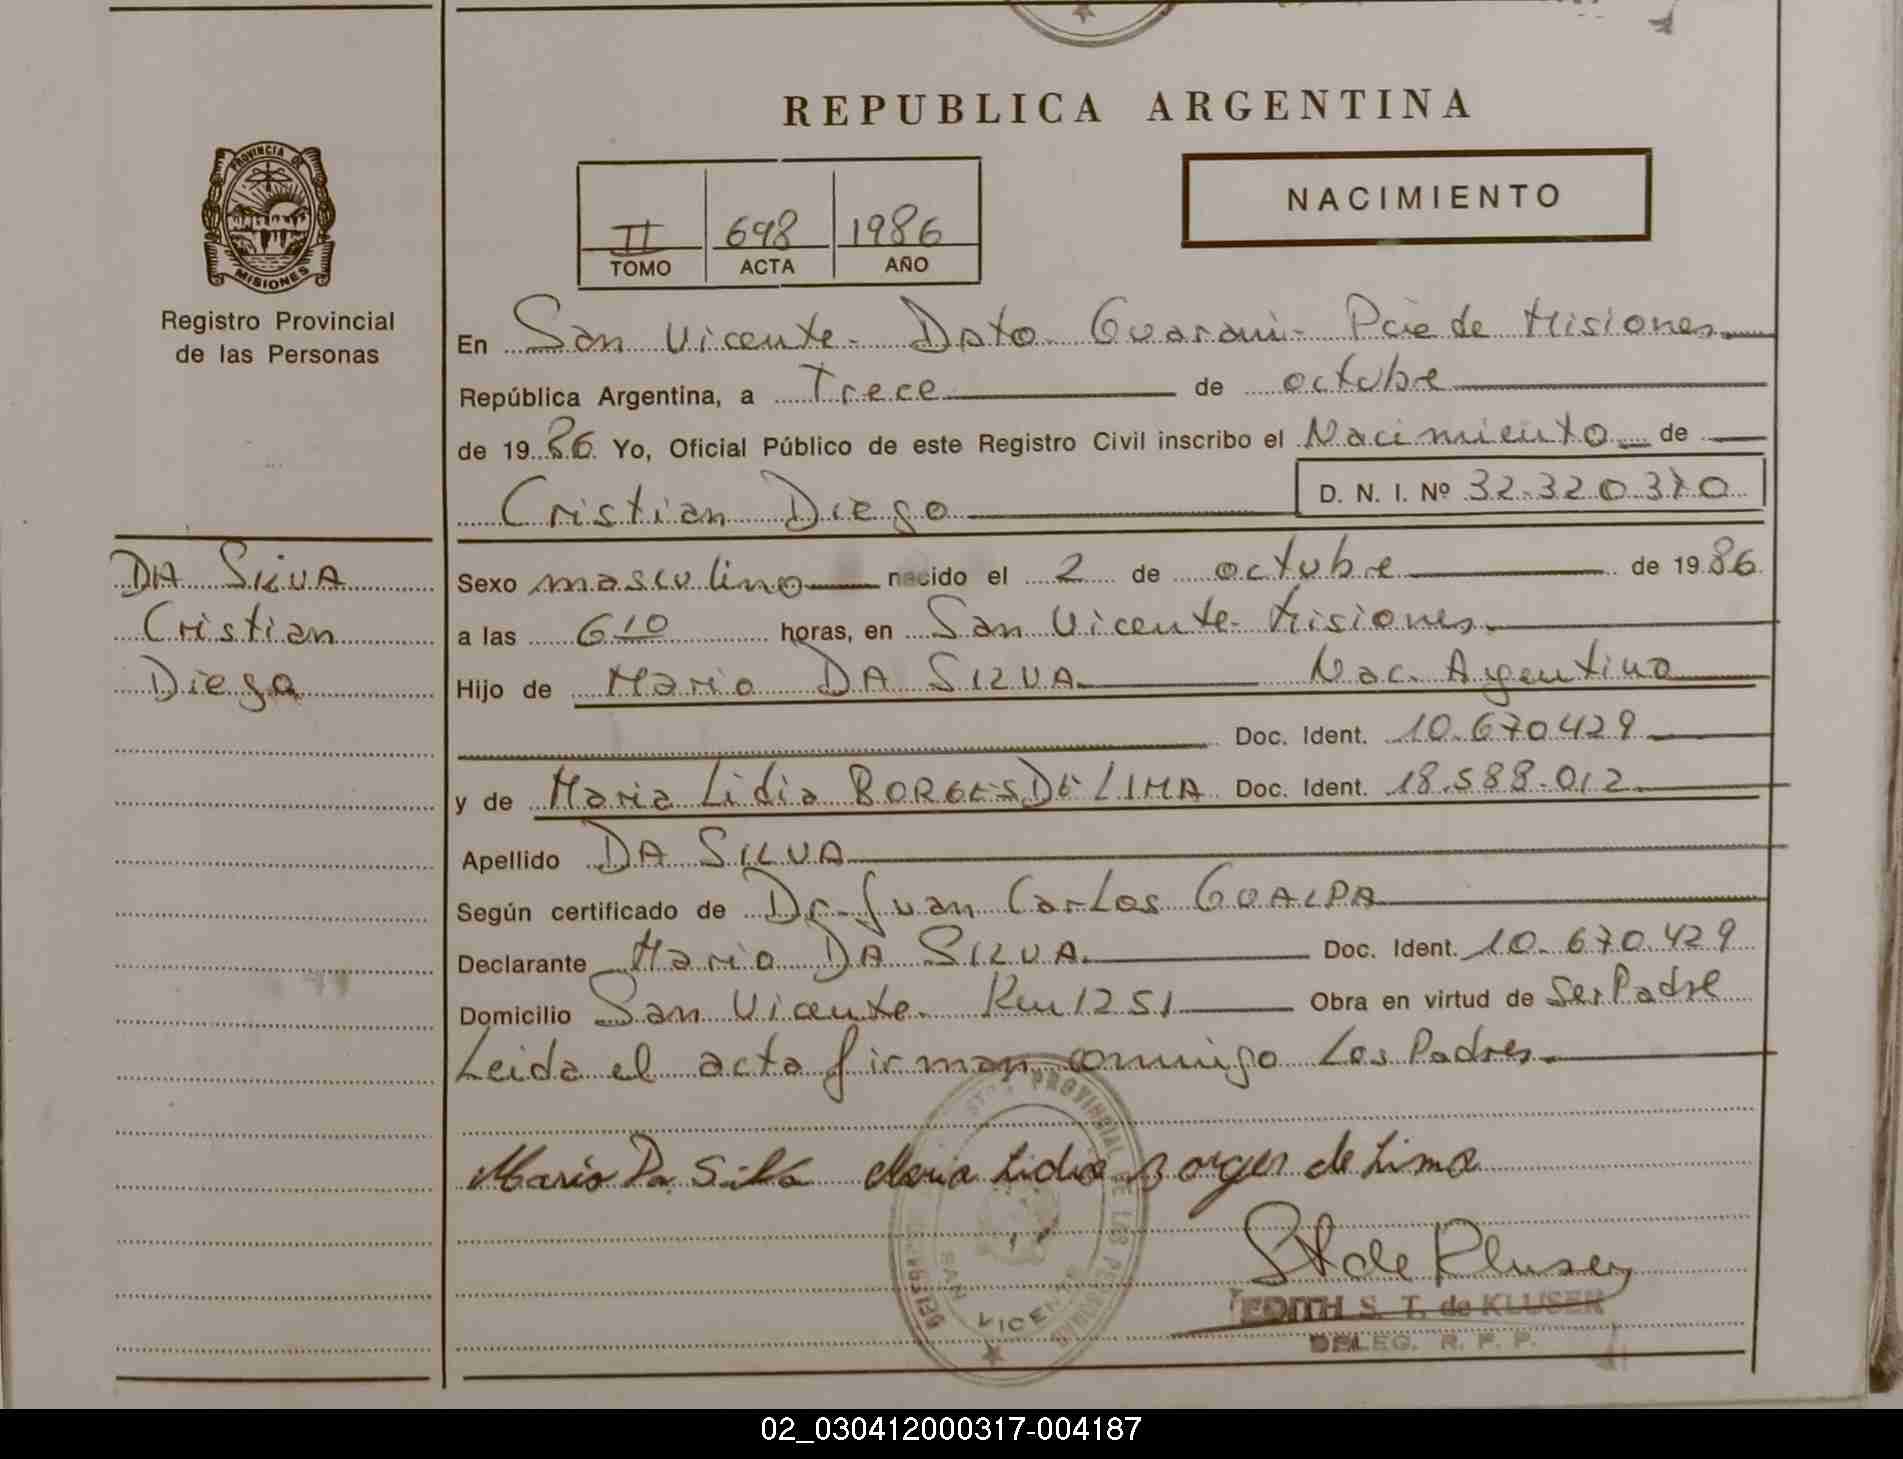 REPUBLICA ARGENTINA
NACIMIENTO
II 698 1986
TOMO ACTA AÑO
PROVINCIA DE
MISIONES
Registro Provincial
de las Personas
En San Vicente - Dpto Guaraní - Pcia de Misiones
República Argentina, a Trece de octubre
de 19 86 Yo, Oficial Público de este Registro Civil inscribo el Nacimiento de
Cristian Diego D. N. I. Nº 32.320.370
DA SILVA
Cristian
Diego
Sexo masculino nacido el 2 de octubre de 19 86
a las 6 10 horas, en San Vicente - Misiones
Hijo de Mario DA SILVA Nac. Argentino
Doc. Ident. 10.670.429
y de Maria Lidia BORGES DE LIMA Doc. Ident. 18.588.012
Apellido DA SILVA
Según certificado de Dr. Juan Carlos
Declarante Mario DA SILVA Doc. Ident. 10.670.429
Domicilio San Vicente - Km 1251 Obra en virtud de Ser Padre
Leida el acta firman conmigo Los Padres
Mario Da Silva Maria Lidia Borges de Lima
PROVINCIAL DE LAS
SAN VICENTE
EDITH S. T. de KLUSER
DELEG. R. P. P.
02_030412000317-004187